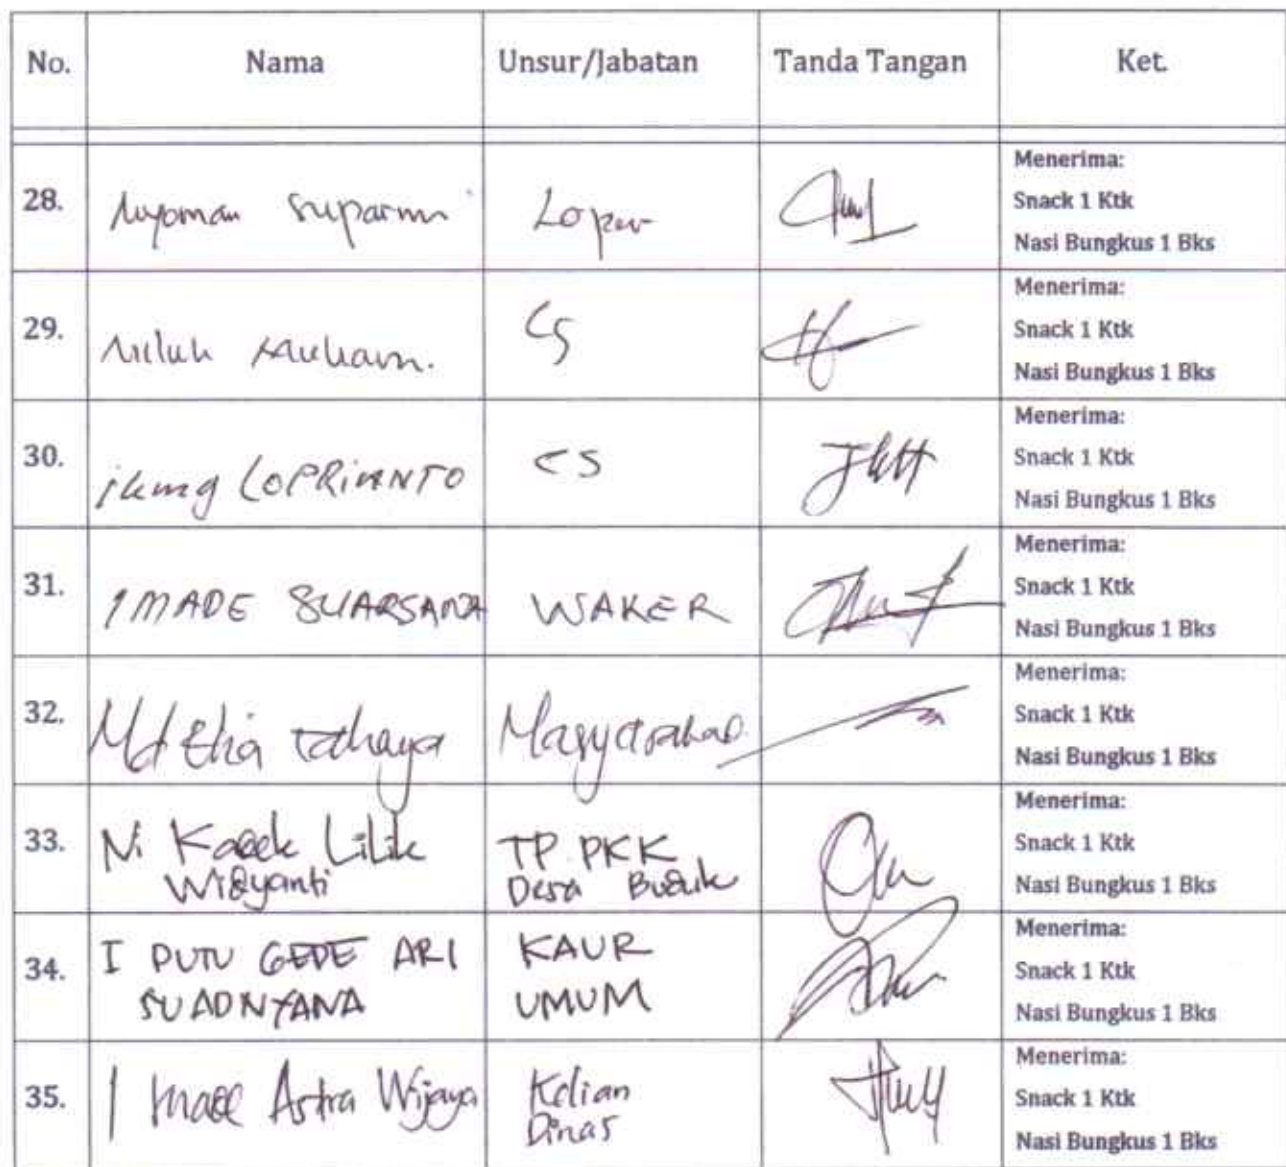 No. Nama Unsur/Jabatan Tanda Tangan Ket.
28. Nyoman Suparmi Loper Menerima:
Snack 1 Ktk
Nasi Bungkus 1 Bks
29. Niluh CS Menerima:
Snack 1 Ktk
Nasi Bungkus 1 Bks
30. CS Menerima:
Snack 1 Ktk
Nasi Bungkus 1 Bks
31. I MADE SUARSANA WAKER Menerima:
Snack 1 Ktk
Nasi Bungkus 1 Bks
32. Md Menerima:
Snack 1 Ktk
Nasi Bungkus 1 Bks
33. Ni Kadek Lilik TP PKK Menerima:
Widyanti Desa Snack 1 Ktk
Nasi Bungkus 1 Bks
34. I PUTU GEDE ARI KAUR Menerima:
SUADNYANA UMUM Snack 1 Ktk
Nasi Bungkus 1 Bks
35. I Made Astra Wijaya Kelian Menerima:
Dinas Snack 1 Ktk
Nasi Bungkus 1 Bks